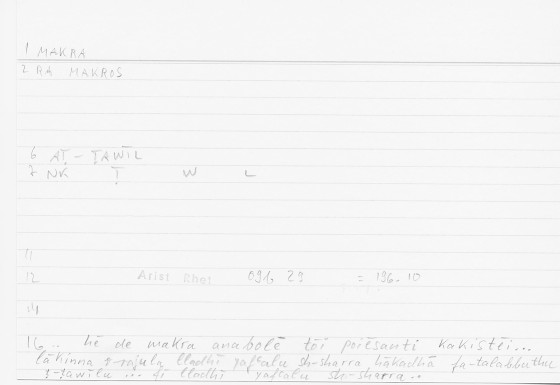 1 MAKRA
2 RA MAKROS
6 AṬ-ṬAWĪL
7 NK Ṭ W L
11
12 Arist Rhet 09b, 29 = 196.10
14
16 .. hē de makra anabolē tōi poiēsanti kakistēi...
lākinna r-rajula lladhī yafʿalu sh-sharra hākadhā fa-talabbuthu
ṭ-ṭawīlu ... li lladhī yafʿalu sh-sharra..